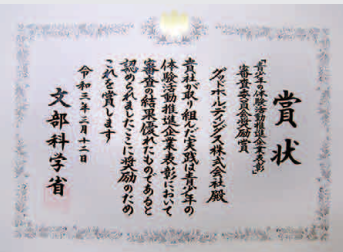 賞状
「青少年の体験活動推進企業表彰」
審査委員会奨励賞
グッドホールディングス株式会社殿
貴社が取り組んだ実践は青少年の
体験活動推進企業表彰において
審査の結果優れたものであると
認められましたここに奨励のため
これを賞します
令和三年三月十二日
文部科学省